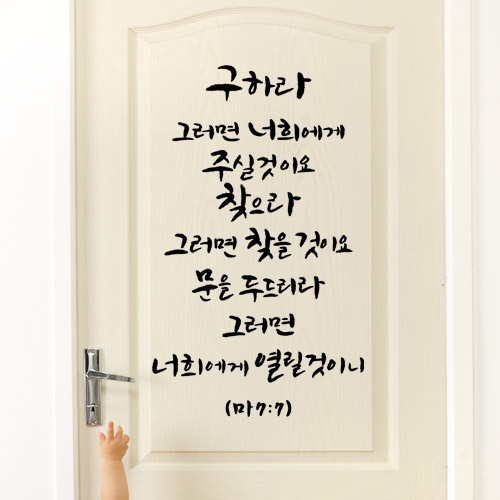 구하라
그러면 너희에게
주실것이요
찾으라
그러면 찾을 것이요
문을 두드리라
그러면
너희에게 열릴것이니
(마7:7)